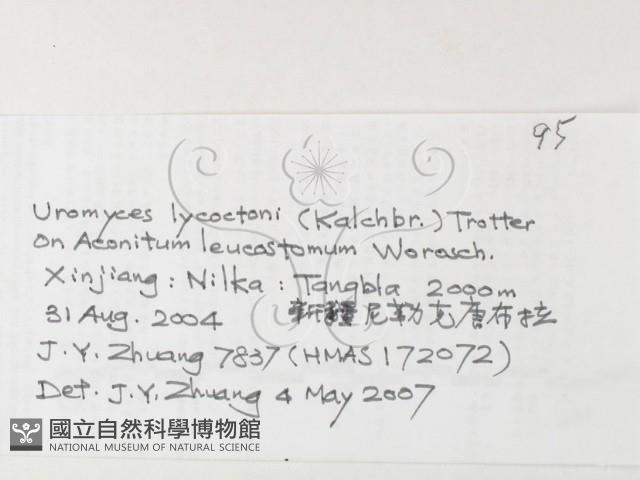 95
Uromyces lycoctoni (Kalchbr.) Trotter
on Aconitum leucostomum Worosch.
Xinjiang: Nilka: Tangbla 2000m
31 Aug. 2004 新疆尼勒克唐布拉
J.Y. Zhuang 7837 (HMAS 172072)
Det. J.Y. Zhuang 4 May 2007
國立自然科學博物館
NATIONAL MUSEUM OF NATURAL SCIENCE